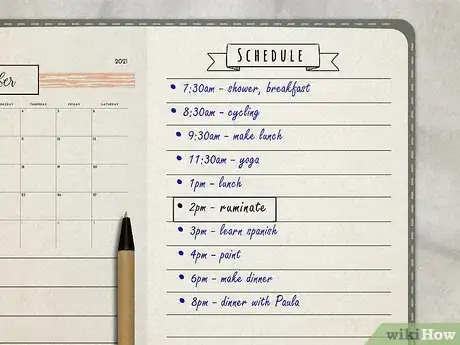 2021
THURSDAY FRIDAY SATURDAY
SCHEDULE
7:30am - shower, breakfast
8:30am - cycling
9:30am - make lunch
11:30am - yoga
1pm - lunch
2pm - ruminate
3pm - learn spanish
4pm - paint
6pm - make dinner
8pm - dinner with Paula
wikiHow